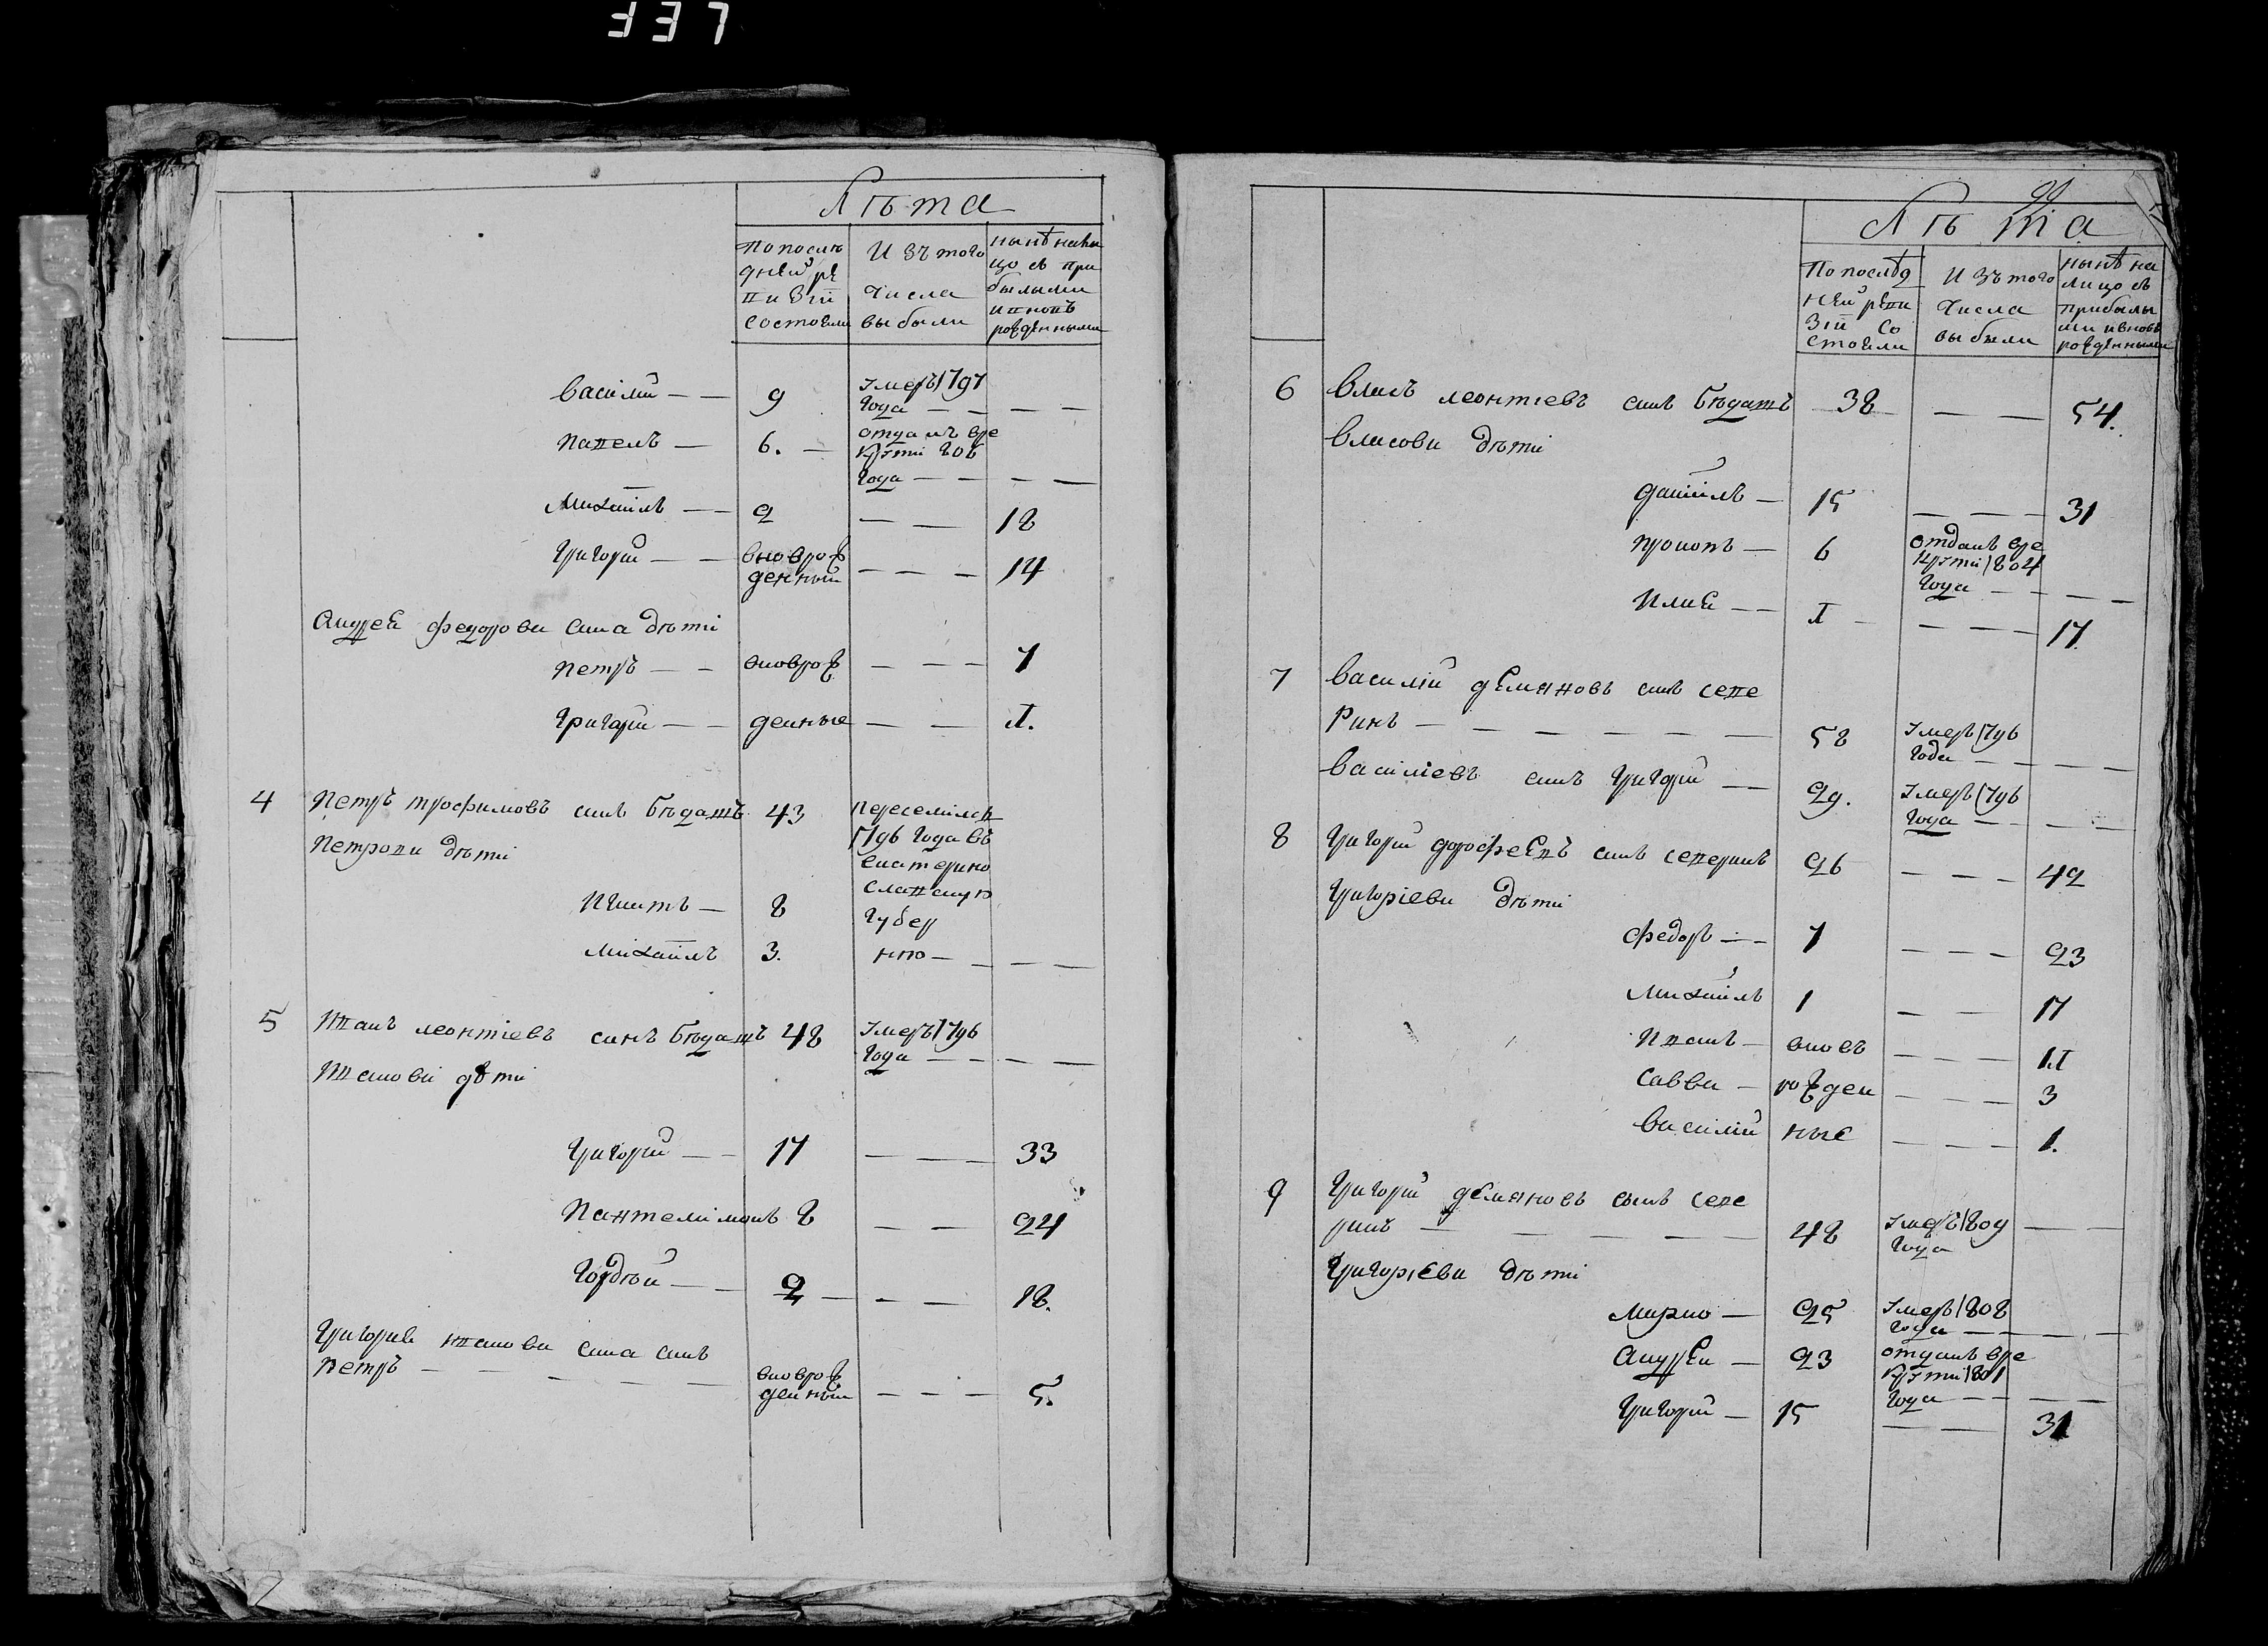 Лѣта
По послѣ
дней ре
визіи
состояли
Изъ того
числа
выбыли
нынѣ на ли
цо съ при
былыми
и вновь
рожденными
василий 9 умеръ 1797
года
павелъ 6. отданъ вре
круты 806
года
михаилъ 2 18
григорий вноврож
денный 14
андрея федорова сина дѣти
петръ вноврож 7
григорий денные 2.
4 петръ трофимовъ синъ бѣдашъ 43 переселился
1796 года въ
екатерино
славскую
губер
нію
петрови дѣти
игнатъ 8
михаилъ 3.
5 иванъ леонтіевъ синъ бѣдашъ 48 умеръ 1796
года
иванови дѣти
григорий 17 33
пантелимонъ 8 24
гордѣй 2 18.
григория иванова сина синъ
петръ вноврож
денный 5.
Лѣта
По послѣд
ней реви
зіи со
стояли
Изъ того
числа
выбыли
нынѣ на
лицо съ
прибылы
ми и вновь
рожденными
6 власъ леонтіевъ синъ бѣдашъ 38 54.
власови дѣти
даніилъ 15 31
прокопъ 6 отданъ вре
круты 1804
года
илия 1 17
7 василій демяновъ синъ севе
ринъ 58 умеръ 1796
года
василіевъ синъ григорий 29. умеръ 1796
года
8 григорий дорофеевъ синъ северинъ 26 42
григоріеви дѣти
федоръ 7 23
михаилъ 1 17
иванъ вновь 11
савва рожден 3
василій ные 1.
9 григорий демяновъ сынъ севе
ринъ 48 умеръ 1809
года
григоріеви дѣти
марко 25 умеръ 1808
года
андрей 23 отданъ вре
круты 1801
года
григорий 15 31